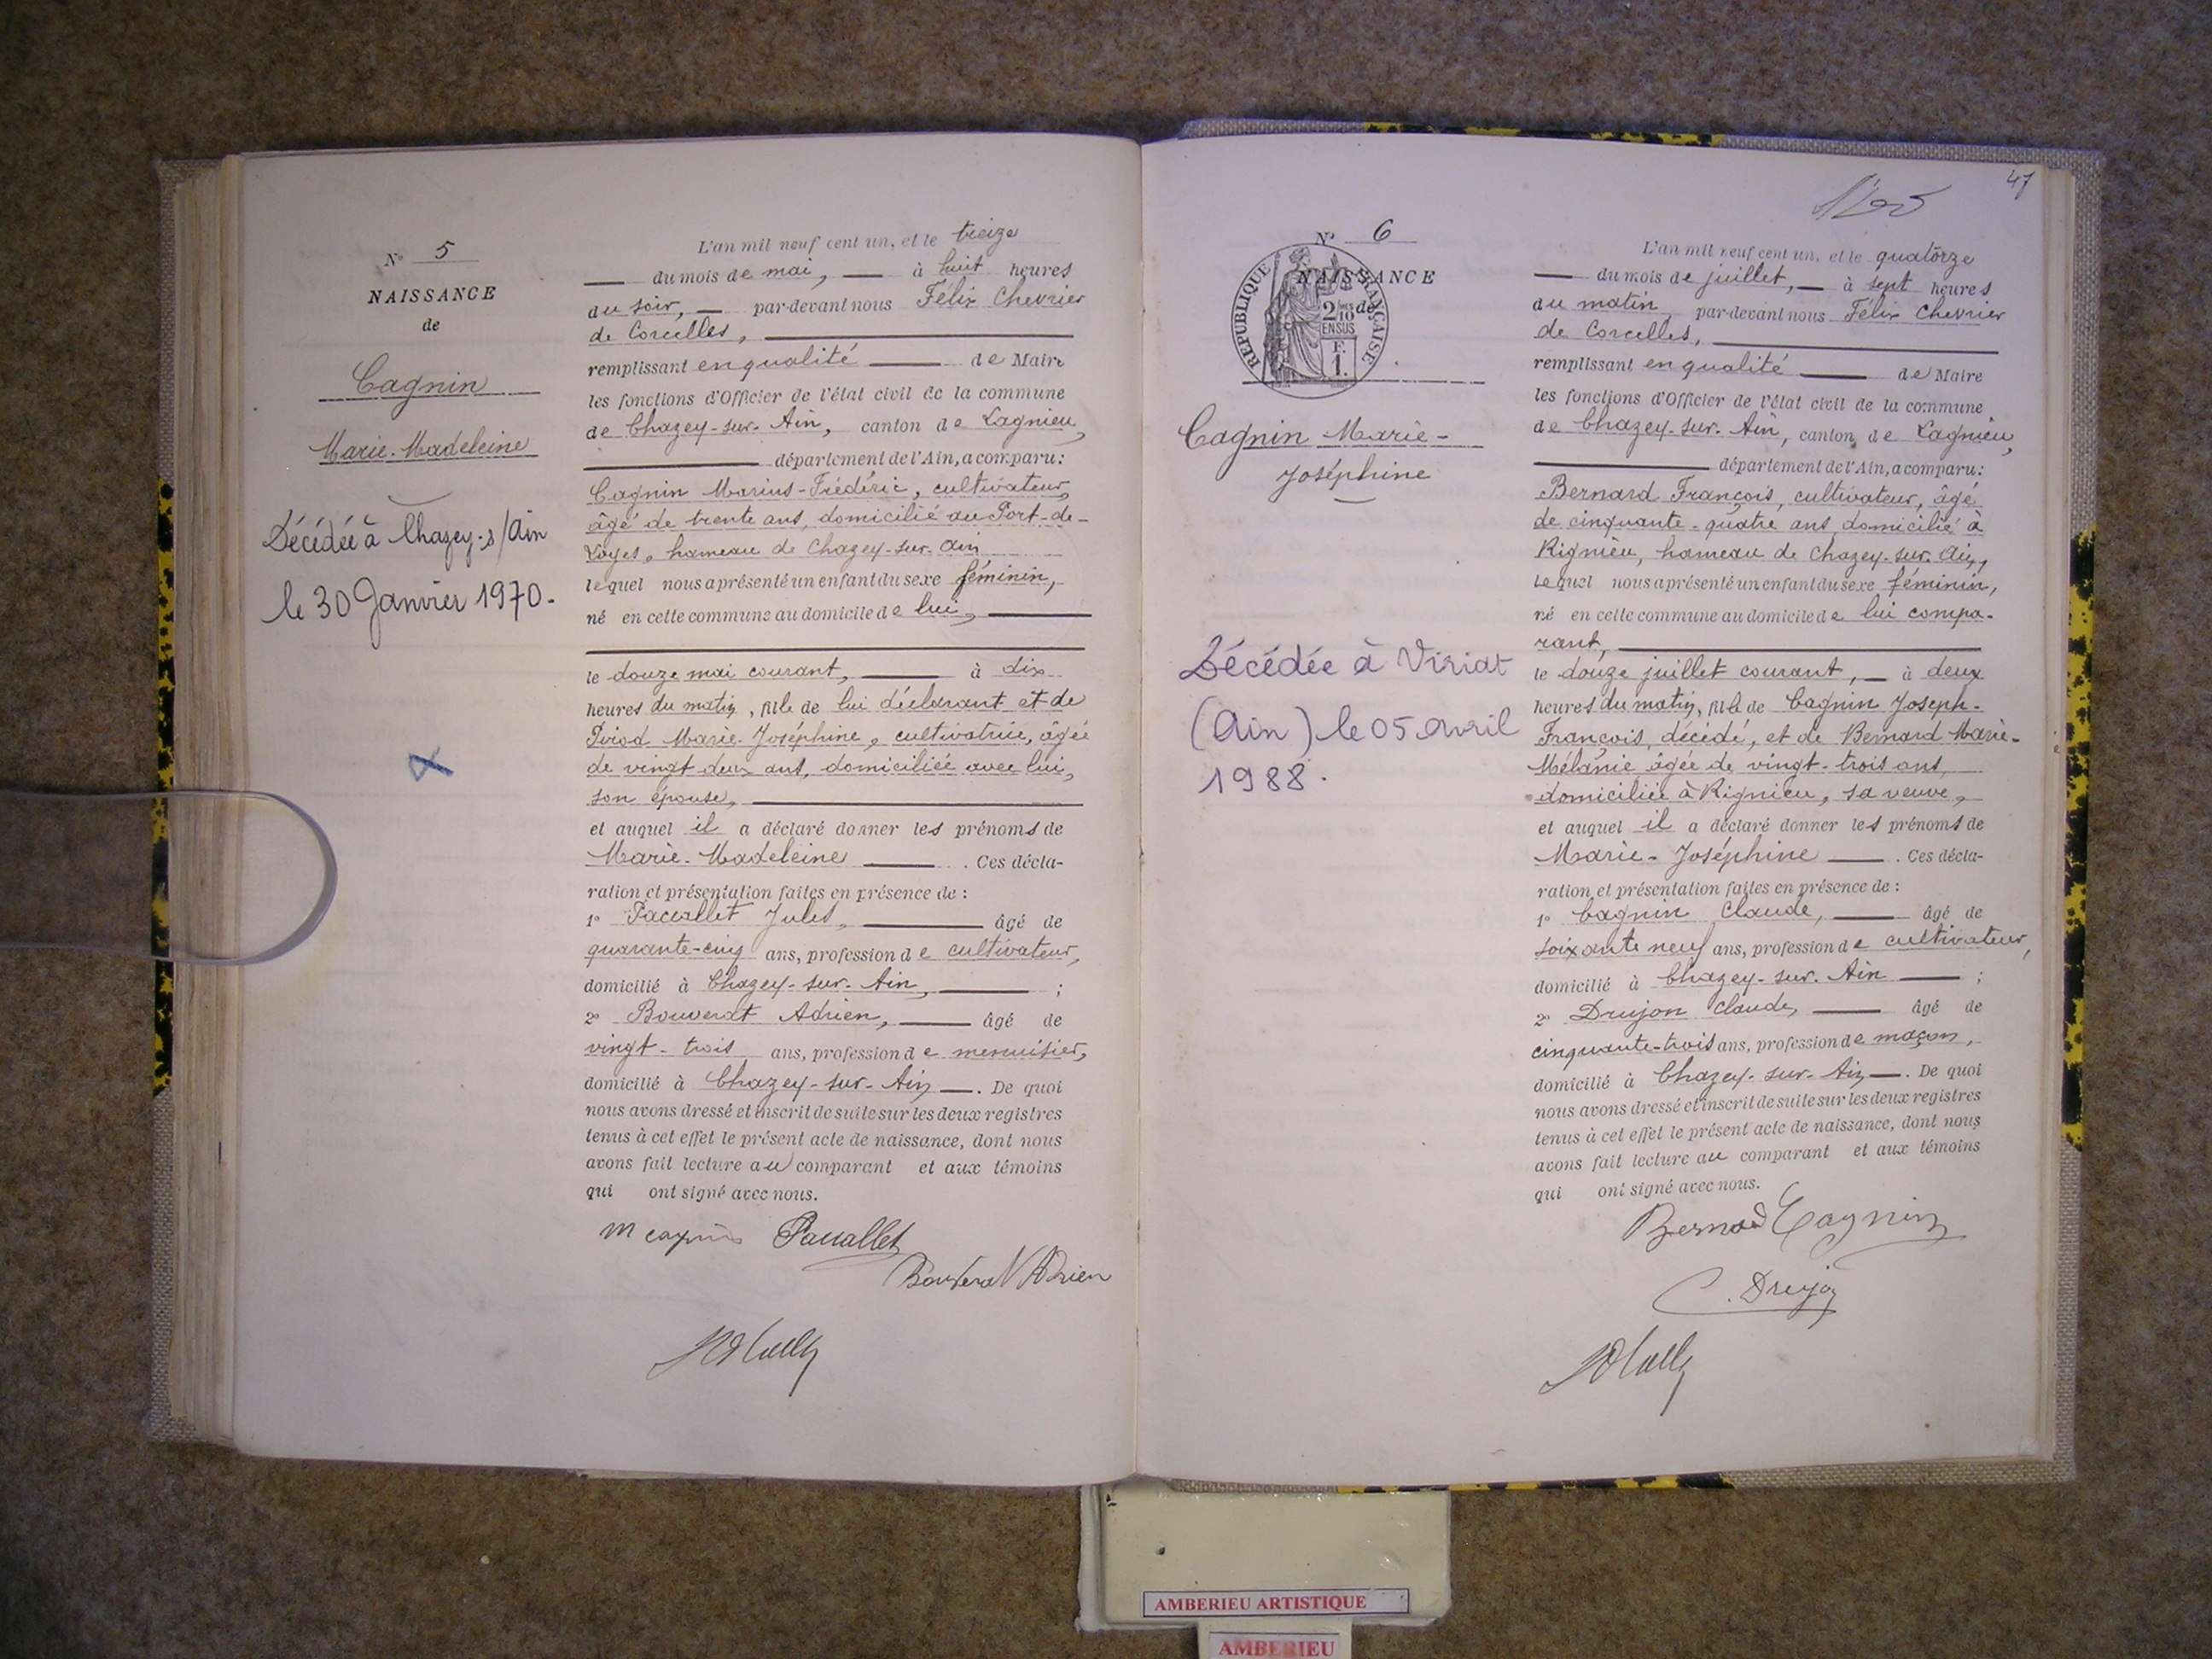 N° 5
NAISSANCE
de
Cagnin
Marie-Madeleine
Décédée à Chazey-s/Ain
le 30 Janvier 1970.
L'an mil neuf cent un, et le treize
du mois de mai, à huit heures
du soir, par-devant nous Félix Chevrier
de Corcelles,
remplissant en qualité de Maire
les fonctions d'Officier de l'état civil de la commune
de Chazey-sur-Ain, canton de Lagnieu,
département de l'Ain, a comparu:
Cagnin Marius-Frédéric, cultivateur,
âgé de trente ans, domicilié au Port-de-
Loyes, hameau de Chazey-sur-Ain
lequel nous a présenté un enfant du sexe féminin,
né en cette commune au domicile de lui,
le douze mai courant, à dix
heures du matin, fille de lui déclarant et de
Marie-Joséphine, cultivatrice, âgée
de vingt deux ans, domiciliée avec lui,
son épouse,
et auquel il a déclaré donner les prénoms de
Marie-Madeleine. Ces décla-
ration et présentation faites en présence de :
1° Pacallet Jules, âgé de
quarante-cinq ans, profession de cultivateur,
domicilié à Chazey-sur-Ain, ;
2° Bouverat Adrien, âgé de
vingt-trois ans, profession de menuisier,
domicilié à Chazey-sur-Ain. De quoi
nous avons dressé et inscrit de suite sur les deux registres
tenus à cet effet le présent acte de naissance, dont nous
avons fait lecture au comparant et aux témoins
qui ont signé avec nous.
M Cagnin Pacallet
Bouverat Adrien
47
N° 6
NAISSANCE
de
REPUBLIQUE FRANÇAISE
2/10 EN SUS
F. 1.
Cagnin Marie-
Joséphine
Décédée à Viriat
(Ain) le 05 Avril
1988.
L'an mil neuf cent un, et le quatorze
du mois de juillet, à sept heures
du matin par-devant nous Félix Chevrier
de Corcelles,
remplissant en qualité de Maire
les fonctions d'Officier de l'état civil de la commune
de Chazey-sur-Ain, canton de Lagnieu,
département de l'Ain, a comparu:
Bernard François, cultivateur, âgé
de cinquante-quatre ans domicilié à
Rignieu, hameau de Chazey-sur-Ain,
lequel nous a présenté un enfant du sexe féminin,
né en cette commune au domicile de lui compa-
rant,
le douze juillet courant, à deux
heures du matin, fille de Cagnin Joseph-
François, décédé, et de Bernard Marie-
Mélanie âgée de vingt-trois ans,
domiciliée à Rignieu, sa veuve,
et auquel il a déclaré donner les prénoms de
Marie-Joséphine. Ces décla-
ration et présentation faites en présence de :
1° Cagnin Claude, âgé de
soixante neuf ans, profession de cultivateur,
domicilié à Chazey-sur-Ain ;
2° Drujon Claude, âgé de
cinquante-trois ans, profession de maçon,
domicilié à Chazey-sur-Ain. De quoi
nous avons dressé et inscrit de suite sur les deux registres
tenus à cet effet le présent acte de naissance, dont nous
avons fait lecture au comparant et aux témoins
qui ont signé avec nous.
Bernard Cagnin
C. Drujon
AMBERIEU ARTISTIQUE
AMBERIEU